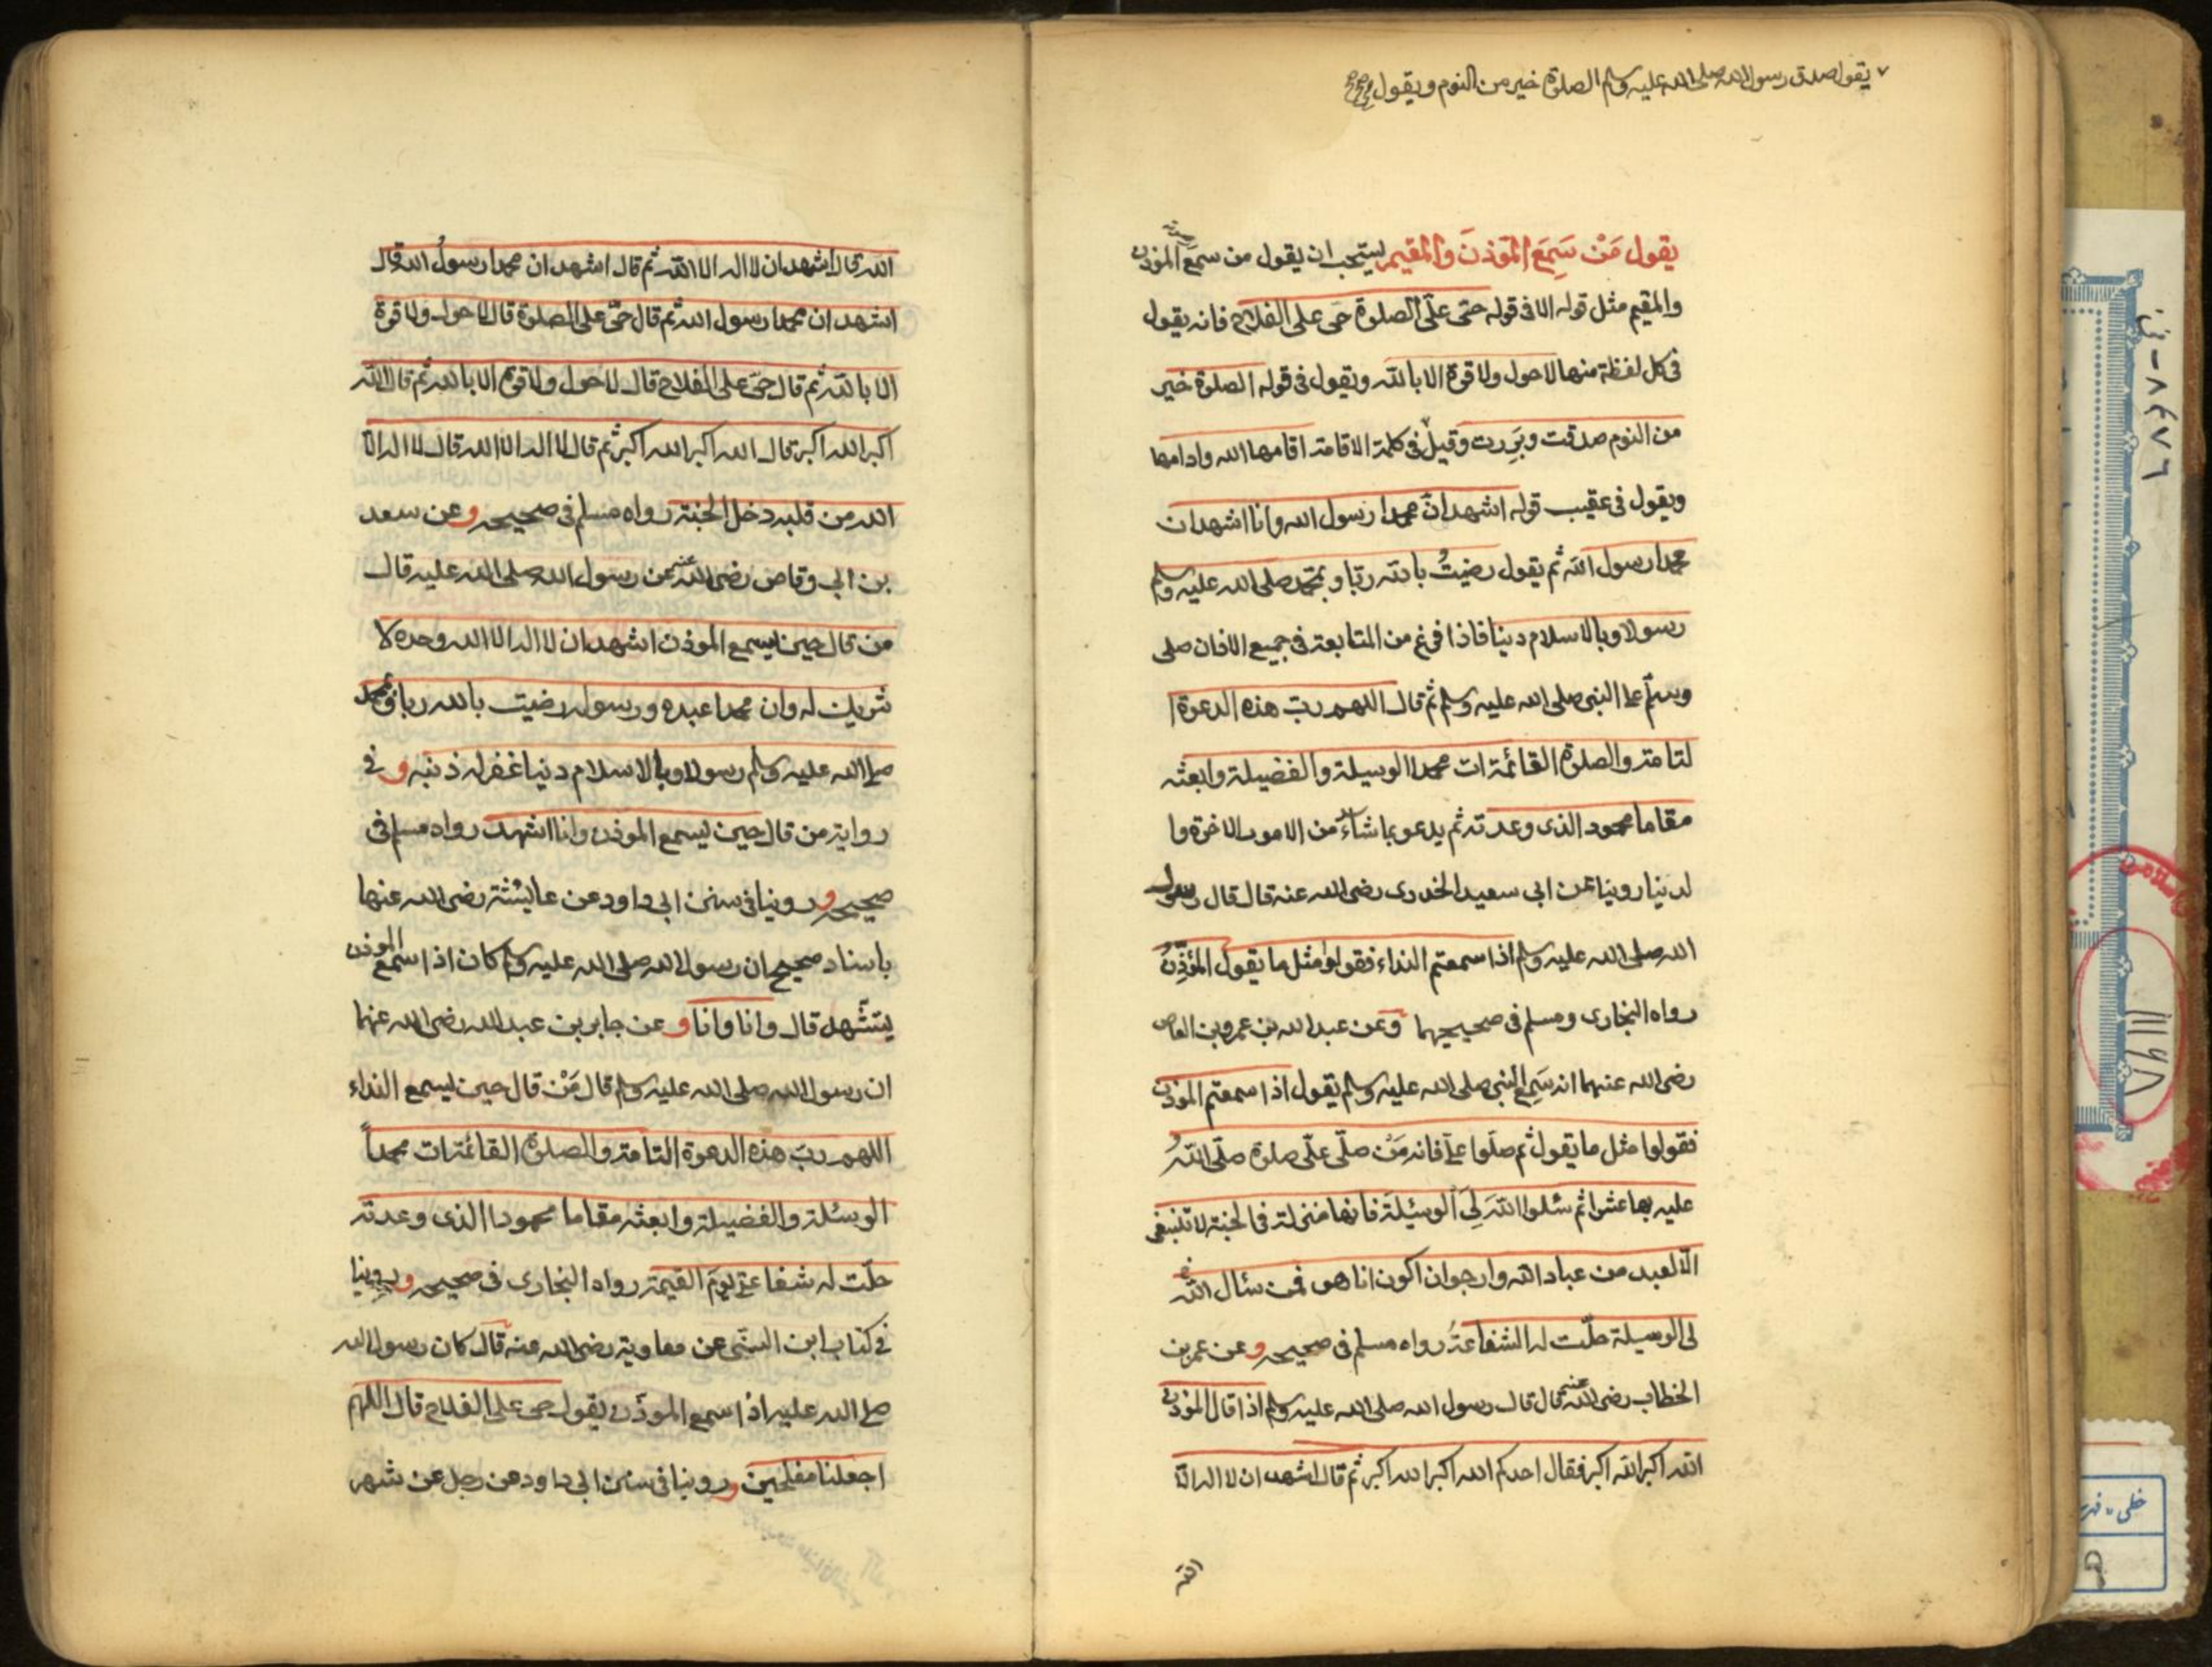 يقول صدق رسول الله صلى الله عليه وسلم الصلوة خير من النوم ويقول
يقول مَنْ سَمِعَ المؤذنَ والمقيم يستحب ان يقول من سمع المؤذن
والمقيم مثل قوله الا فى قوله حىّ على الصلوة حى على الفلاح فانه يقول
فى كل لفظة منها لا حول ولا قوة الا بالله ويقول فى قوله الصلوة خير
من النوم صدقت وبَرِرت وقيل فى كلمة الاقامة اقامها الله وادامها
ويقول فى عقيب قوله اشهد انّ محمدا رسول الله وانا اشهد ان
محمدا رسول الله ثم يقول رضيتُ بالله ربّا وبمحمد صلى الله عليه وسلم
رسولا وبالاسلام دينا فاذا فرغ من المتابعة فى جميع الاذان صلى
وسلّم على النبى صلى الله عليه وسلم ثم قال اللهم ربّ هذه الدعوة ا
لتامة والصلوة القائمة ات محمدا الوسيلة والفضيلة وابعثه
مقاما محمود الذى وعدته ثم يدعو بما شاء من الامور الاخرة وا
لدنيا روينا عن ابى سعيد الخدرى رضى الله عنه قال قال رسول
الله صلى الله عليه وسلم اذا سمعتم النداء فقولوا مثل ما يقول المؤذّنُ
رواه البخارى ومسلم فى صحيحيهما وعن عبد الله بن عمرو بن العاص
رضى الله عنهما انه سَمِع النبى صلى الله عليه وسلم يقول اذا سمعتم المؤذن
فقولوا مثل ما يقول ثم صلّوا علىّ فانه مَنْ صلّى علىّ صلوة صلّى اللهُ
عليه بها عشرا ثم سئلوا اللهَ لِىَ الوسيلةَ فانها منزلة فى الجنة لا تنبغى
الّا لعبد من عباد الله وارجو ان اكون انا هو فمن سئال الله
لى الوسيلة حلّت له الشفاعةُ رواه مسلم فى صحيحه وعن عمر بن
الخطاب رضى الله عنه قال قال رسول الله صلى الله عليه وسلم اذا قال المؤذن
الله اكبر الله اكبر فقال احدكم الله اكبر الله اكبر ثم قال اشهد ان لا اله الّا
الله
الله قال اشهد ان لا اله الا الله ثم قال اشهد ان محمدا رسولُ الله قال
اشهد ان محمدا رسول الله ثم قال حىّ على الصلوة قال لا حول ولا قوة
الا بالله ثم قال حىّ على الفلاح قال لا حول ولا قوة الا بالله ثم قال الله
اكبر الله اكبر قال الله اكبر الله اكبر ثم قال لا اله الا الله قال لا اله الّا
الله من قلبه دخل الجنة رواه مسلم فى صحيحه وعن سعد
بن ابى وقاص رضى الله عنه عن رسول الله صلى الله عليه قال
من قال حين يسمع الموذن اشهد ان لا اله الا الله وحده لا
شريك له وان محمدا عبده ورسوله رضيت بالله ربا وبمحمد
صلى الله عليه وسلم رسولا وبالاسلام دينا غفر له ذنبه وفى
رواية من قال حين يسمع الموذن وانا اشهد رواه مسلم فى
صحيحه وروينا فى سنن ابى داود عن عايشة رضى الله عنها
باسناد صحيح ان رسول الله صلى الله عليه وسلم كان اذا سمع الموذن
يتشّهد قال وانا وانا وعن جابر بن عبد الله رضى الله عنهما
ان رسول الله صلى الله عليه وسلم قال مَنْ قال حين يسمع النداء
اللهم ربّ هذه الدعوة التامة والصلوة القائمة ات محمداً
الوسئلة والفضيلة وابعثه مقاما محمودا الذى وعدته
حلّت له شفاعتى يومَ القيمة رواه البخارى فى صحيحه وروينا
فى كتاب ابن السنّى عن معاوية رضى الله عنه قال كان رسول الله
صلى الله عليه اذا سمع الموذّن يقول حى على الفلاح قال اللهم
اجعلنا مفلحين وروينا فى سنن ابى داود عن رجل عن شهر